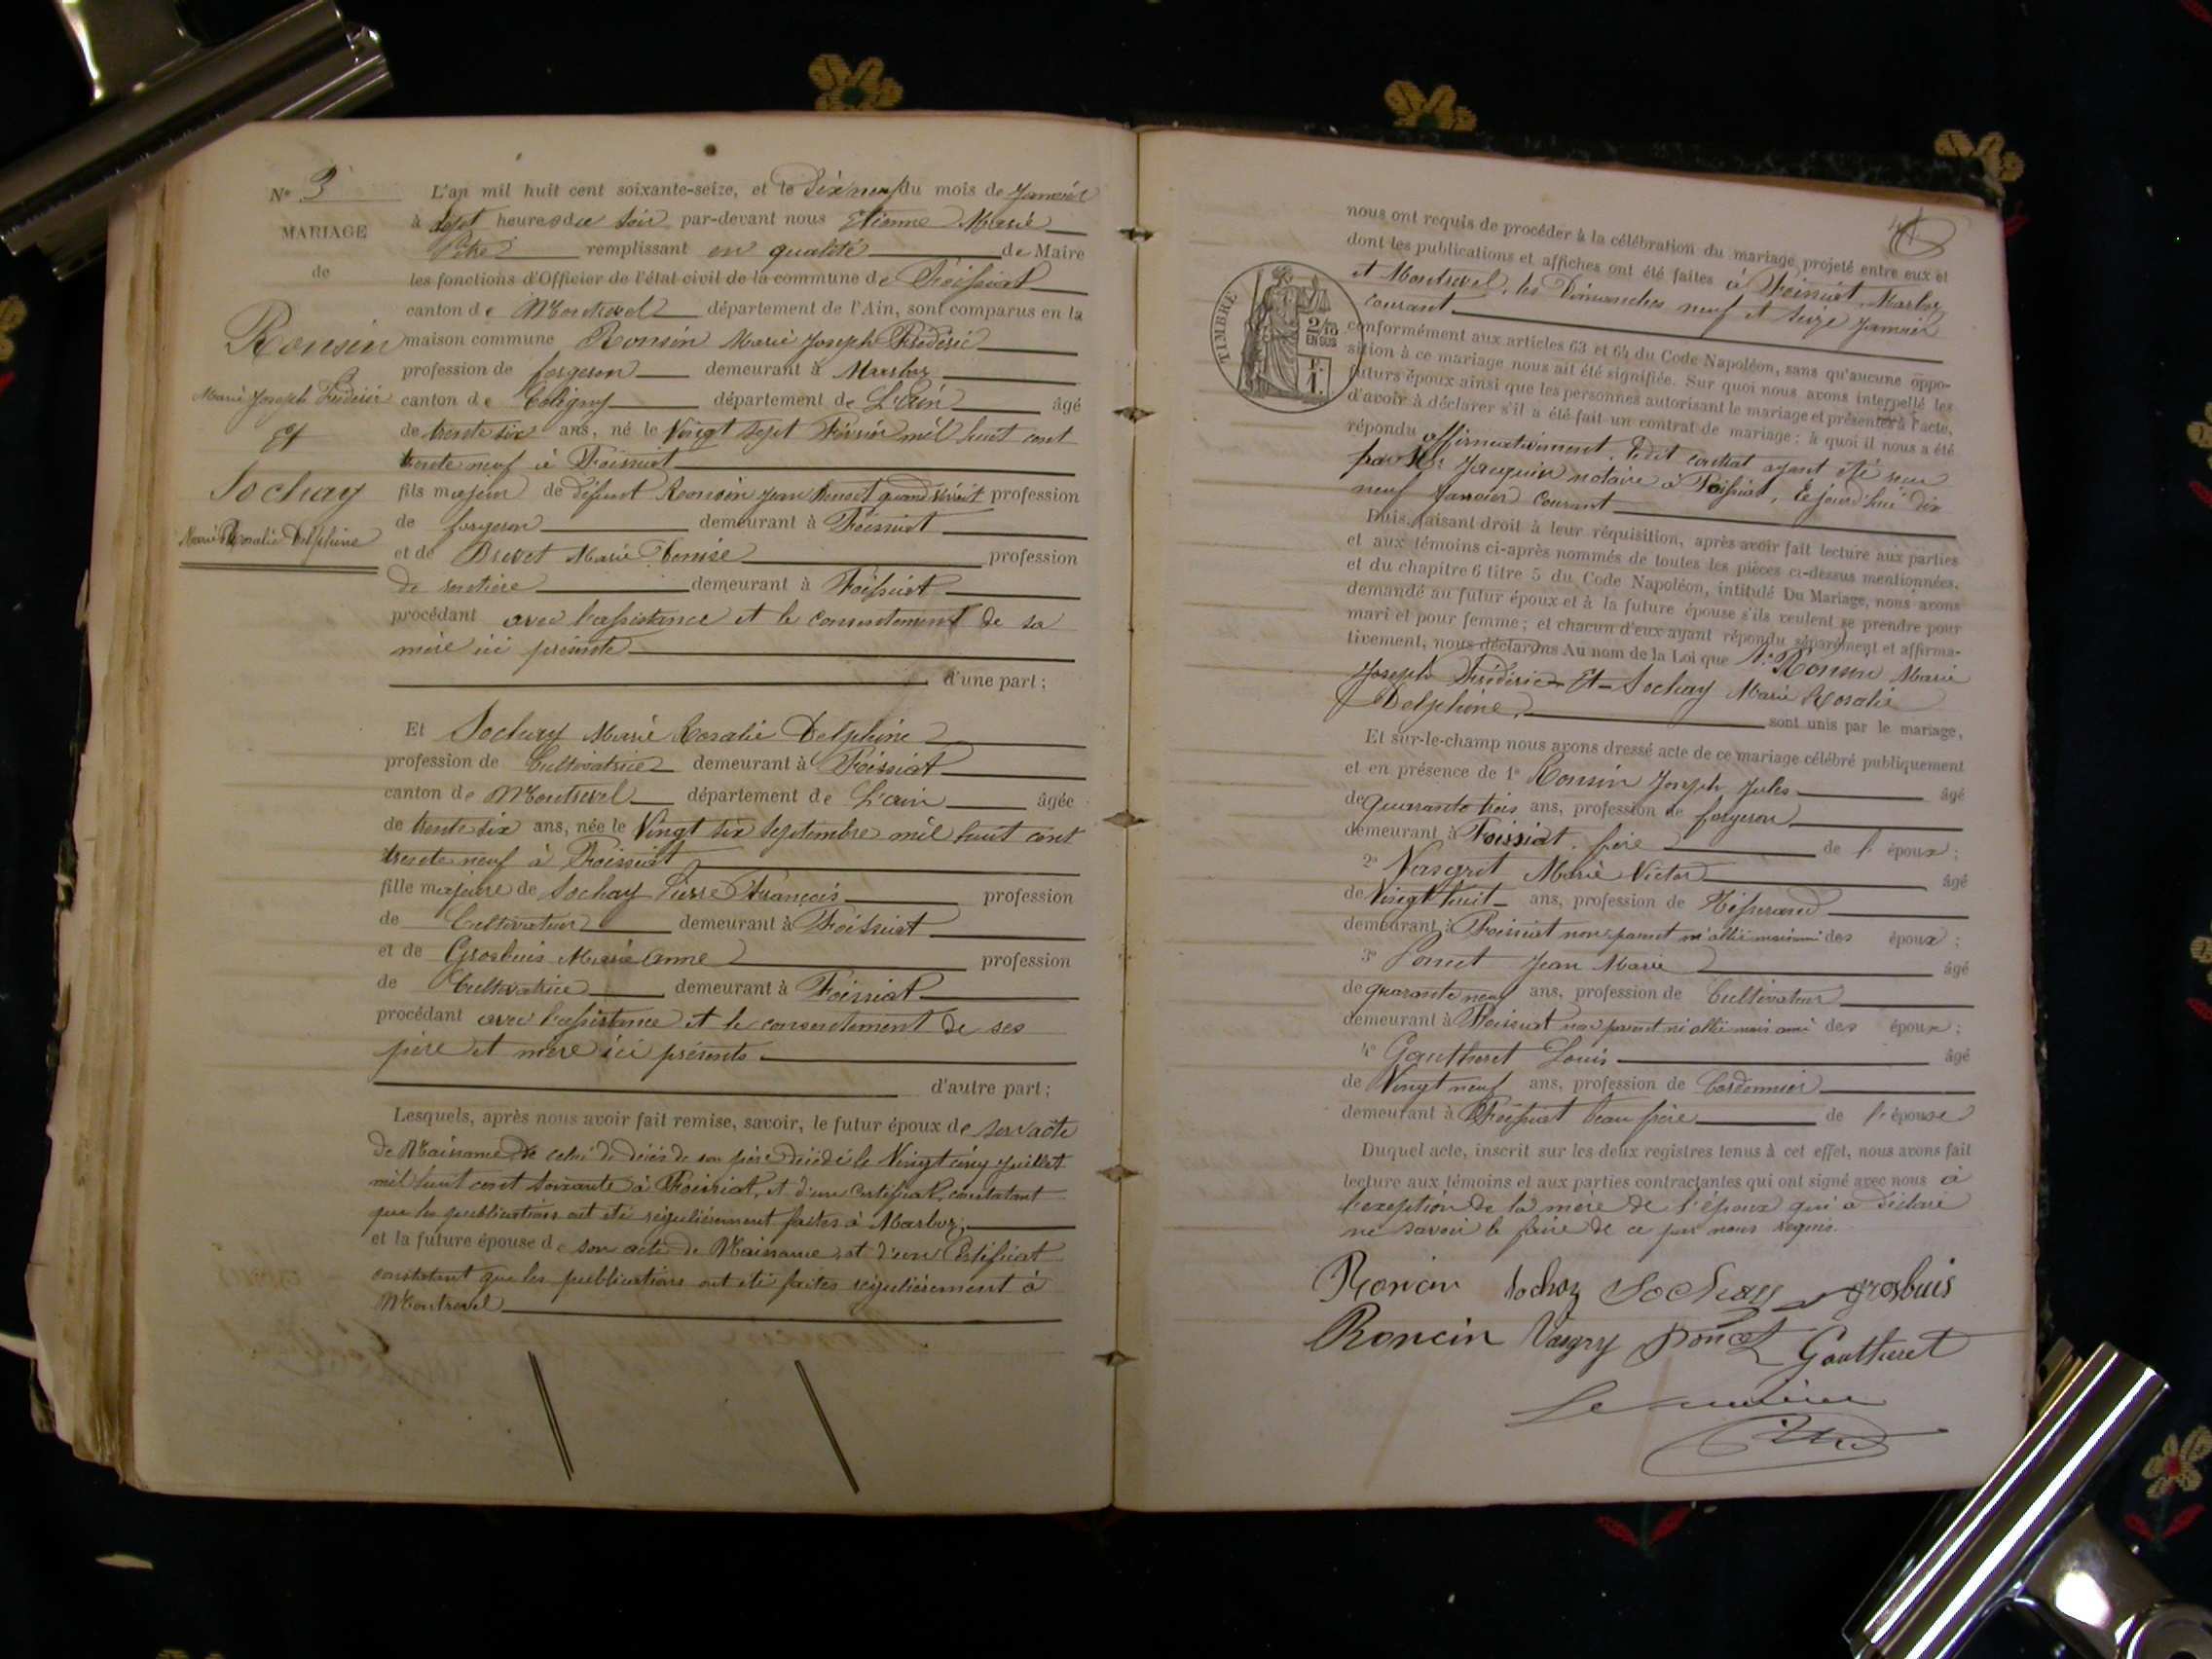 N° 3
MARIAGE
de
Ronsin
Marie Joseph Frédéric
Et
Sochay
Marie Rosalie Delphine
L'an mil huit cent soixante-seize, et le Dix neuf du mois de Janvier
à Sept heures du Soir par-devant nous Etienne Marie
remplissant en qualité de Maire
les fonctions d'Officier de l'état civil de la commune de Foissiat
canton de Montrevel département de l'Ain, sont comparus en la
maison commune Ronsin Marie Joseph Frédéric
profession de forgeron demeurant à Marboz
canton de Coligny département de L'Ain âgé
de trente six ans, né le Vingt Sept Février mil huit cent
trente neuf à Foissiat
fils majeur de défunt Ronsin Jean Benoit quand vivait profession
de forgeron demeurant à Foissiat
et de Brevet Marie Denise profession
de rentière demeurant à Foissiat
procédant avec l'assistance et le consentement de sa
mère ici présente
d'une part ;
Et Sochay Marie Rosalie Delphine
profession de Cultivatrice demeurant à Foissiat
canton de Montrevel département de L'ain âgée
de trente six ans, née le Vingt six Septembre mil huit cent
trente neuf à Foissiat
fille majeure de Sochay Pierre François profession
de Cultivateur demeurant à Foissiat
et de Grosbuis Marie Anne profession
de Cultivatrice demeurant à Foissiat
procédant avec l'assistance et le consentement de ses
père et mère ici présents
d'autre part ;
Lesquels, après nous avoir fait remise, savoir, le futur époux de son acte
de Naissance de celui de décès de son père décédé le Vingt cinq Juillet
mil huit cent soixante à Foissiat, et d'un Certificat constatant
que les publications ont été régulièrement faites à Marboz ;
et la future épouse de son acte de Naissance et d'un Certificat
constatant que les publications ont été faites régulièrement à
Montrevel
nous ont requis de procéder à la célébration du mariage projeté entre eux et
dont les publications et affiches ont été faites à Foissiat, Marboz
et Montrevel, les Dimanches neuf et seize Janvier
courant
TIMBRE
2/10
EN SUS
conformément aux articles 63 et 64 du Code Napoléon, sans qu'aucune oppo-
sition à ce mariage nous ait été signifiée. Sur quoi nous avons interpellé les
futurs époux ainsi que les personnes autorisant le mariage et présentes à l'acte,
d'avoir à déclarer s'il a été fait un contrat de mariage ; à quoi il nous a été
répondu affirmativement, ledit contrat ayant été reçu
par Me Jacquin notaire à Foissiat, Cejourd'hui dix
neuf Janvier Courant
Puis, faisant droit à leur réquisition, après avoir fait lecture aux parties
et aux témoins ci-après nommés de toutes les pièces ci-dessus mentionnées,
et du chapitre 6 titre 5 du Code Napoléon, intitulé Du Mariage, nous avons
demandé au futur époux et à la future épouse s'ils veulent se prendre pour
mari et pour femme ; et chacun d'eux ayant répondu séparément et affirma-
tivement, nous déclarons Au nom de la Loi que Ronsin Marie
Joseph Frédéric Et Sochay Marie Rosalie
Delphine, sont unis par le mariage,
Et sur-le-champ nous avons dressé acte de ce mariage célébré publiquement
et en présence de 1° Ronsin Joseph Jules âgé
de quarante trois ans, profession de forgeron
demeurant à Foissiat, frère de l'époux ;
2° Vasgrit Marie Victor âgé
de Vingt huit ans, profession de Tisserand
demeurant à Foissiat non parent ni allié mais ami des époux ;
3° Poncet Jean Marie âgé
de quarante neuf ans, profession de Cultivateur
demeurant à Foissiat non parent ni allié mais ami des époux ;
4° Gautheret Louis âgé
de Vingt neuf ans, profession de Cordonnier
demeurant à Foissiat beau frère de l'épouse
Duquel acte, inscrit sur les deux registres tenus à cet effet, nous avons fait
lecture aux témoins et aux parties contractantes qui ont signé avec nous à
l'exception de la mère de l'époux qui a déclaré
ne savoir le faire de ce par nous requis.
Roncin Sochay Sochay grosbuis
Roncin Vasgry poncet Gautheret
Le maire